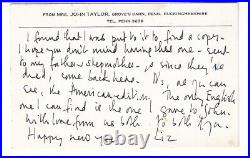 FROM MRS. JOHN TAYLOR, GROVE'S BARN, PENN, BUCKINGHAMSHIRE
TEL. PENN
I found that I was put to it to find a copy.
I hope you don't mind having that one - sent
to my father & stepmother, & since they've
died, come back here. It, as you can
see, the American edition. The only English
one I can find is the one I gave to John.
With love from us both to both of you.
Happy new year Liz